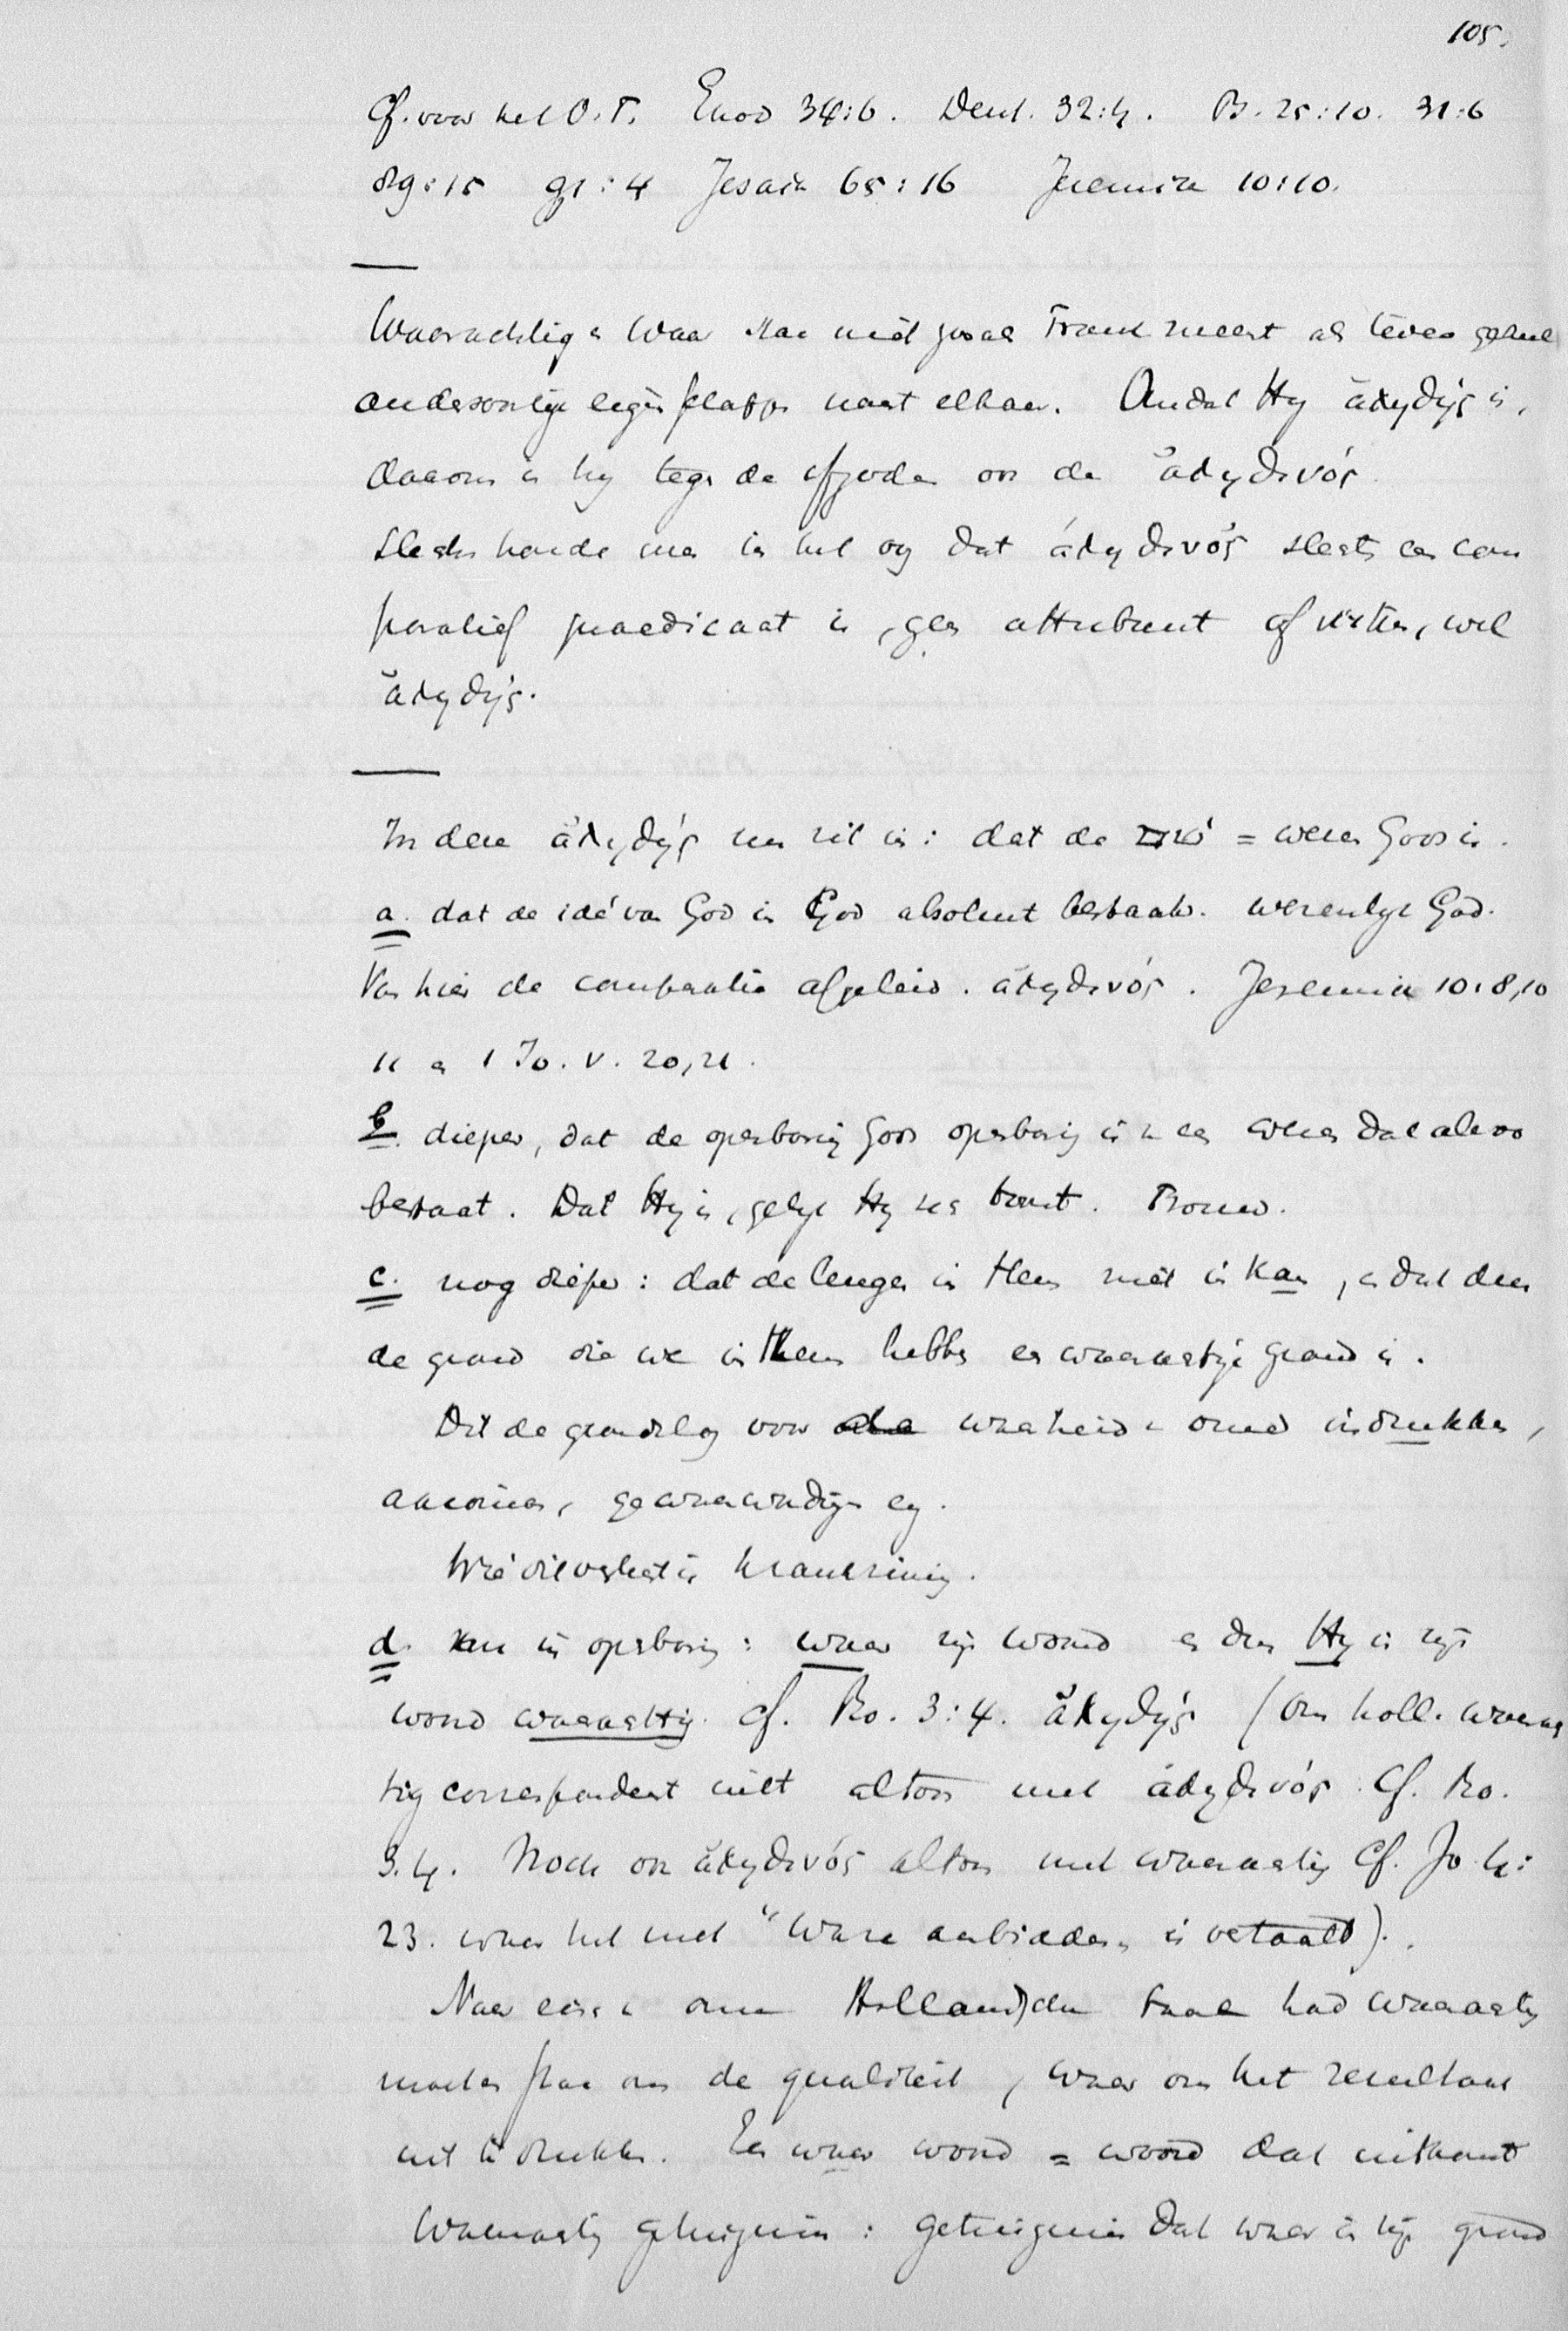 105.
Cf. voor het O.T. Exod 34:6. Deut. 32:4. Ps. 25:10. 31:6
89:15 91:4 Jesaia 65:16 Jeremia 10:10.
Waarachtig en Waar staan niet zooals Frank meent als twee geheel
onderscheidene eigenschappen naast elkaar. Omdat Hy ἀληθής is,
daarom is hy tegen de afgoden on de ἀληθινός
Slechts houde men in het oog dat ἀληθινός slechts een com
paratief praedicaat is, geen attribuut of virtus, wel
ἀληθής.
In deze ἀληθής nu zit in: dat de = wezen Gods is.
a. dat de idé van God in God absoluut bestaat. wezenlyk God.
Van hier de comparatie afgeleid. ἀληθινός. Jeremia 10:8,10
11 en 1 Jo. V. 20,21.
b. dieper, dat de openbaring Gods openbaring is van een wezen dat alzoo
bestaat. Dat Hy is, gelyk Hy zich toont. Trouw.
c. nog dieper: dat de leugen in Hem niet in kan, en dat dus
de grond die we in Hem hebben een waarachtige grond is.
Dit de grondslag voor waarheid in onze indrukken,
axiomen, gewaarwordingen enz.
Wie dit verliest is krankzinnig.
d. Nu in openbaring: waar zyn woord en dus Hy in zyn
woord waarachtig. Cf. Ro. 3:4. ἀληθής (Ons holl. waarach
tig correspondeert niet altoos met ἀληθινός. Cf. Ro.
3.4. Noch on ἀληθινός altoos met waarachtig Cf. Jo 4:
23. waar het met "Ware aanbidders" is vertaald).
Naar eisch onzer Hollandsche taal had waarachtig
moeten staan om de qualiteit, waar om het resultaat
uit te drukken. Een waar woord = woord dat uitkomt
Waarachtig getuigenis: getuigenis dat waar is in zyn grond